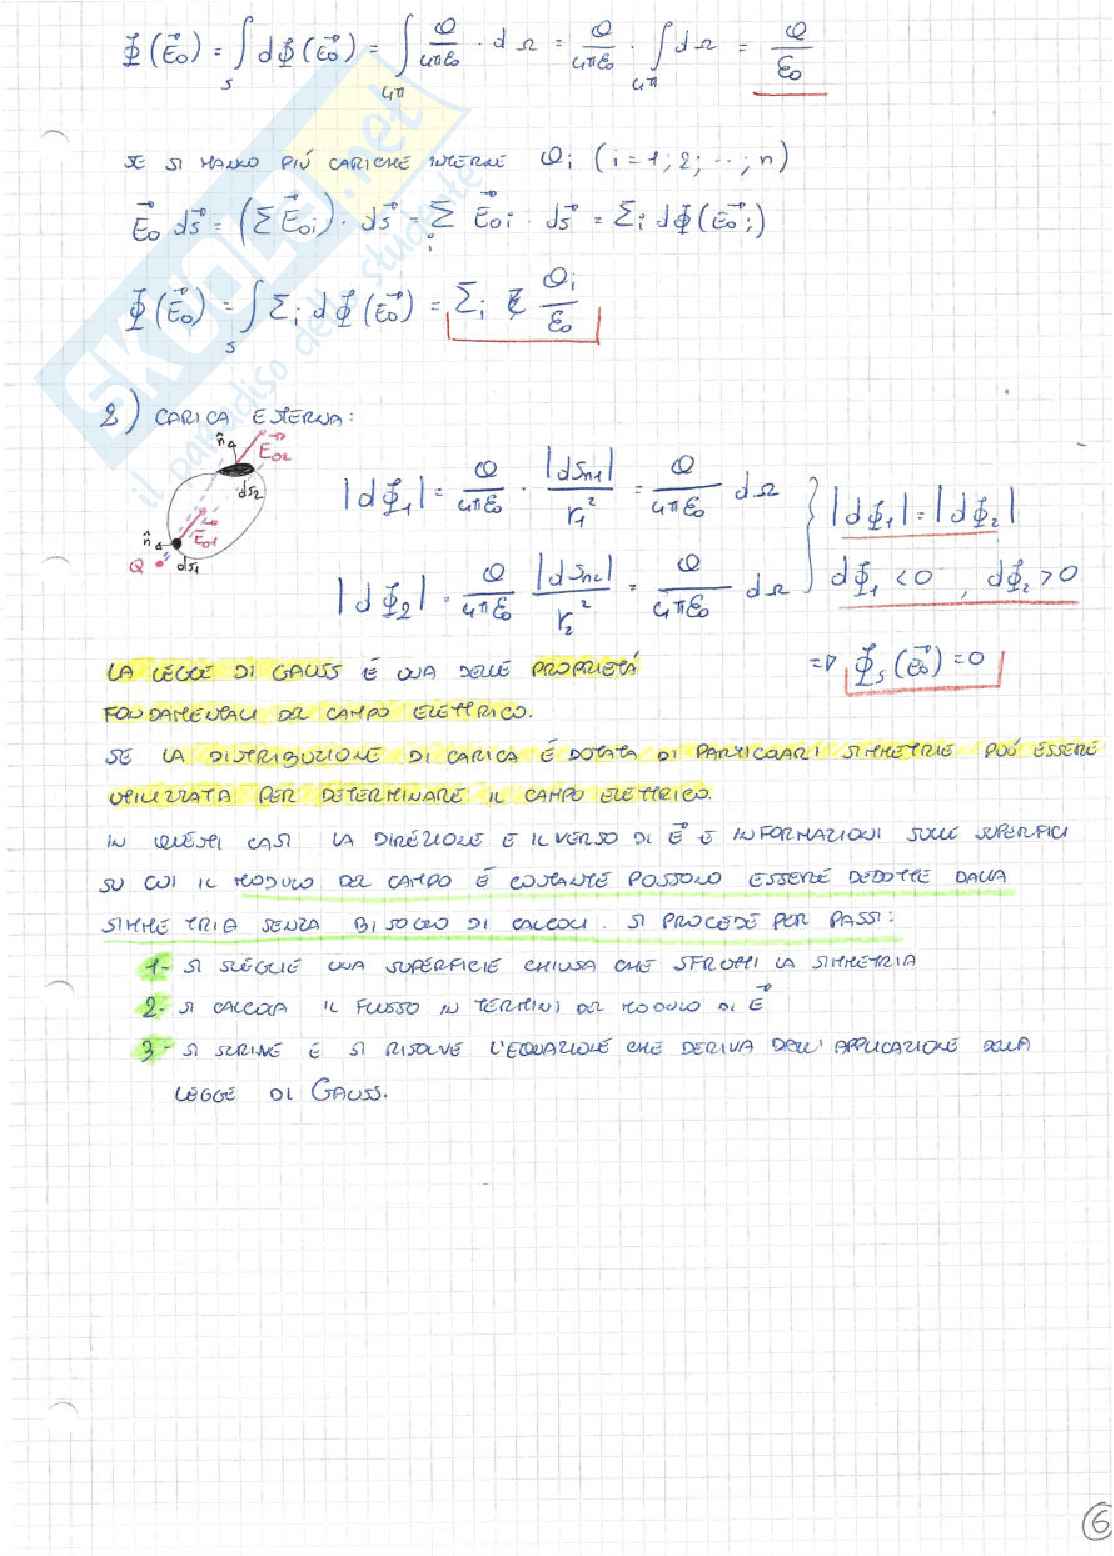 Φ(E⃗₀) = ∫_S dΦ(E⃗₀) = ∫_4π Q/4πε₀ · dΩ = Q/4πε₀ · ∫_4π dΩ = Q/ε₀
SE SI HANNO PIÙ CARICHE INTERNE Qᵢ (i = 1; 2; ...; n)
E⃗₀ dS⃗ = (Σ E⃗₀ᵢ) · dS⃗ = Σᵢ E⃗₀ᵢ · dS⃗ = Σᵢ dΦ(E⃗₀ᵢ)
Φ(E⃗₀) = ∫_S Σᵢ dΦ(E⃗₀) = Σᵢ Qᵢ/ε₀
2) CARICA ESTERNA:
n̂ E⃗₀₂
dS₂
n̂ E⃗₀₁
Q dS₁
|dΦ₁| = Q/4πε₀ · |dSn₁|/r₁² = Q/4πε₀ dΩ
|dΦ₂| = Q/4πε₀ |dSn₂|/r₂² = Q/4πε₀ dΩ
|dΦ₁| = |dΦ₂|
dΦ₁ < 0, dΦ₂ > 0
=> Φ_S(E⃗₀) = 0
LA LEGGE DI GAUSS È UNA DELLE PROPRIETÀ
FONDAMENTALI DEL CAMPO ELETTRICO.
SE LA DISTRIBUZIONE DI CARICA È DOTATA DI PARTICOLARI SIMMETRIE PUÒ ESSERE
UTILIZZATA PER DETERMINARE IL CAMPO ELETTRICO.
IN QUESTI CASI LA DIREZIONE E IL VERSO DI E⃗ E INFORMAZIONI SULLE SUPERFICI
SU CUI IL MODULO DEL CAMPO È COSTANTE POSSONO ESSERE DEDOTTE DALLA
SIMMETRIA SENZA BISOGNO DI CALCOLI. SI PROCEDE PER PASSI:
1- SI SCEGLIE UNA SUPERFICIE CHIUSA CHE SFRUTTI LA SIMMETRIA
2- SI CALCOLA IL FLUSSO IN TERMINI DEL MODULO DI E⃗
3- SI SCRIVE E SI RISOLVE L'EQUAZIONE CHE DERIVA DALL'APPLICAZIONE DELLA
LEGGE DI GAUSS.
6
SKUOLA.net
il paradiso dello studente